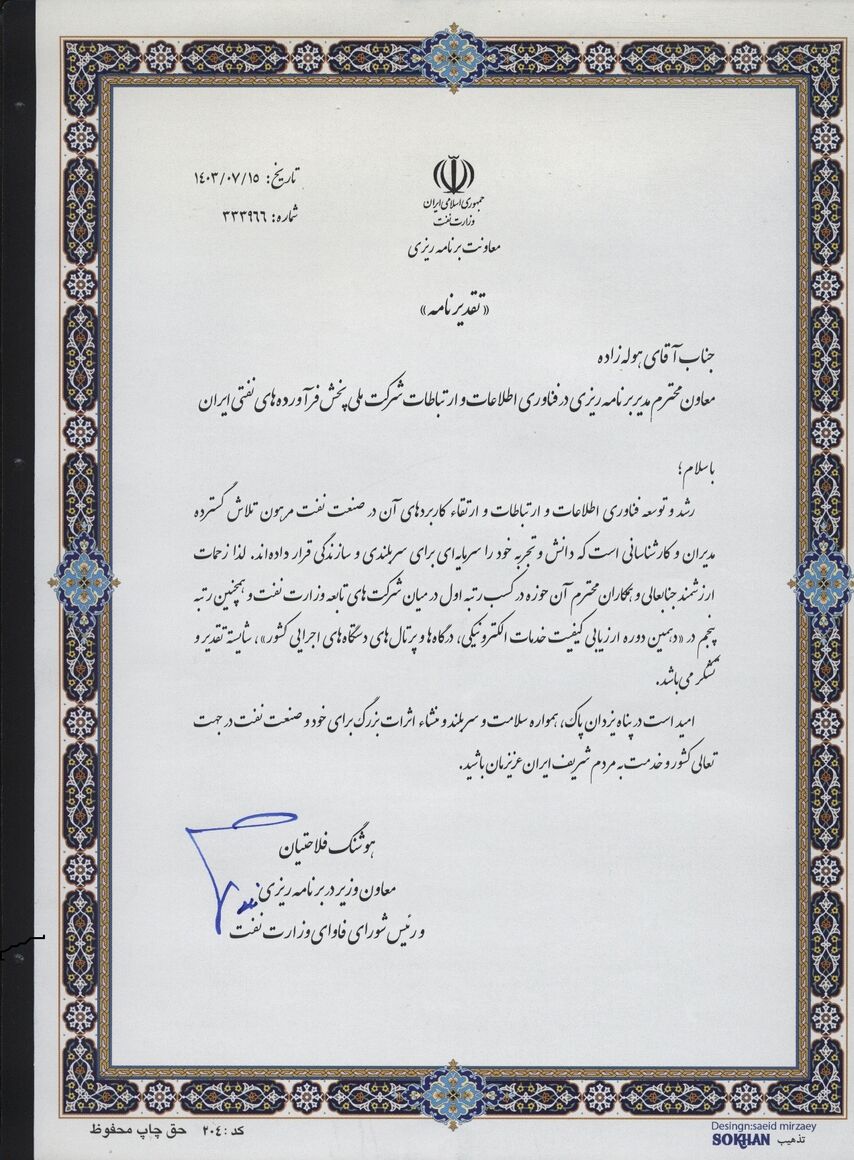 جمهوری اسلامی ایران
وزارت نفت
معاونت برنامه ریزی
تاریخ: ۱۴۰۳/۰۷/۱۵
شماره: ۳۳۳۹۶۶
«تقدیرنامه»
جناب آقای هوله زاده
معاون محترم مدیر برنامه ریزی در فناوری اطلاعات و ارتباطات شرکت ملی پخش فرآورده های نفتی ایران
با سلام؛
رشد و توسعه فناوری اطلاعات و ارتباطات و ارتقاء کاربردهای آن در صنعت نفت مرهون تلاش گسترده
مدیران و کارشناسانی است که دانش و تجربه خود را سرمایه‌ای برای سربلندی و سازندگی قرار داده‌اند. لذا زحمات
ارزشمند جنابعالی و همکاران محترم آن حوزه در کسب رتبه اول در میان شرکت های تابعه وزارت نفت و همچنین رتبه
پنجم در «دهمین دوره ارزیابی کیفیت خدمات الکترونیکی، درگاه‌ها و پرتال های دستگاه‌های اجرایی کشور»، شایسته تقدیر و
تشکر می‌باشد.
امید است در پناه یزدان پاک، همواره سلامت و سربلند و منشاء اثرات بزرگ برای خود و صنعت نفت در جهت
تعالی کشور و خدمت به مردم شریف ایران عزیزمان باشید.
هوشنگ فلاحتیان
معاون وزیر در برنامه ریزی
و رئیس شورای فاوای وزارت نفت
کد: ۲۰٤ حق چاپ محفوظ
Desingn:saeid mirzaey
SOKHAN تذهیب